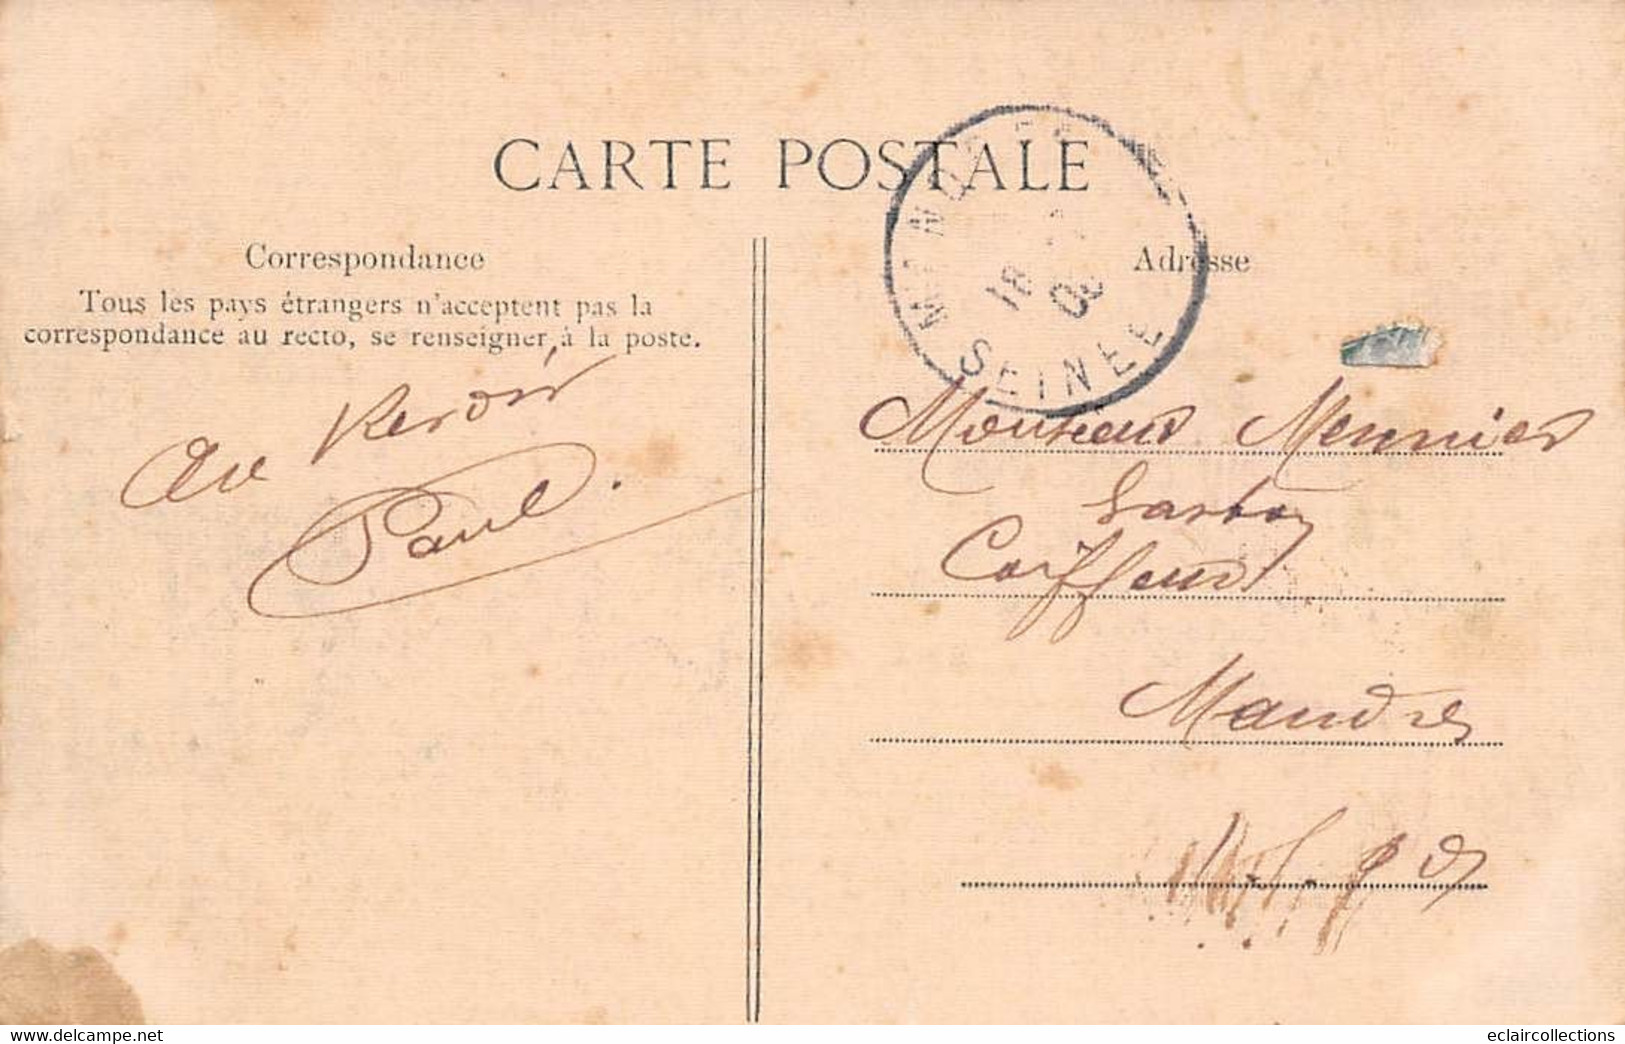 CARTE POSTALE
Correspondance
Tous les pays étrangers n'acceptent pas la
correspondance au recto, se renseigner à la poste.
Au Revoir
Paul.
18
SEINE
Adresse
Monsieur Meunier
Coiffeur
Mandres
S. & O
www.delcampe.net
eclaircollections